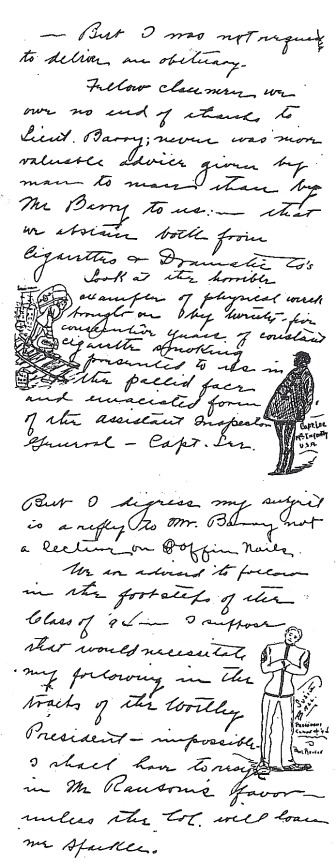 — But I was not required
to deliver an obituary.
Fellow classmen we
owe no end of thanks to
Lieut. Barry; never was more
valuable advice given by
man to man than by
Mr Barry to us:— that
we abstain both from
Cigarettes & Dramatic Co's
Look at the horrible
example of physical wreck
brought on by twenty-five
consecutive years of constant
cigarette smoking
presented to us in
the pallid face
and emaciated form
of the assistant Inspector
General — Capt. Lee.
Capt Lee
Infantry
U.S.A.
But I digress my subject
is a reply to Mr. Barry not
a lecture on Coffin Nails.
We are advised to follow
in the footsteps of the
Class of '94 — I suppose
that would necessitate
my following in the
tracks of the Worthy
President — impossible
I shall have to resign
in Mr Ransom's favor —
unless the Col. will loan
me Sparkle.
President
Class of '94